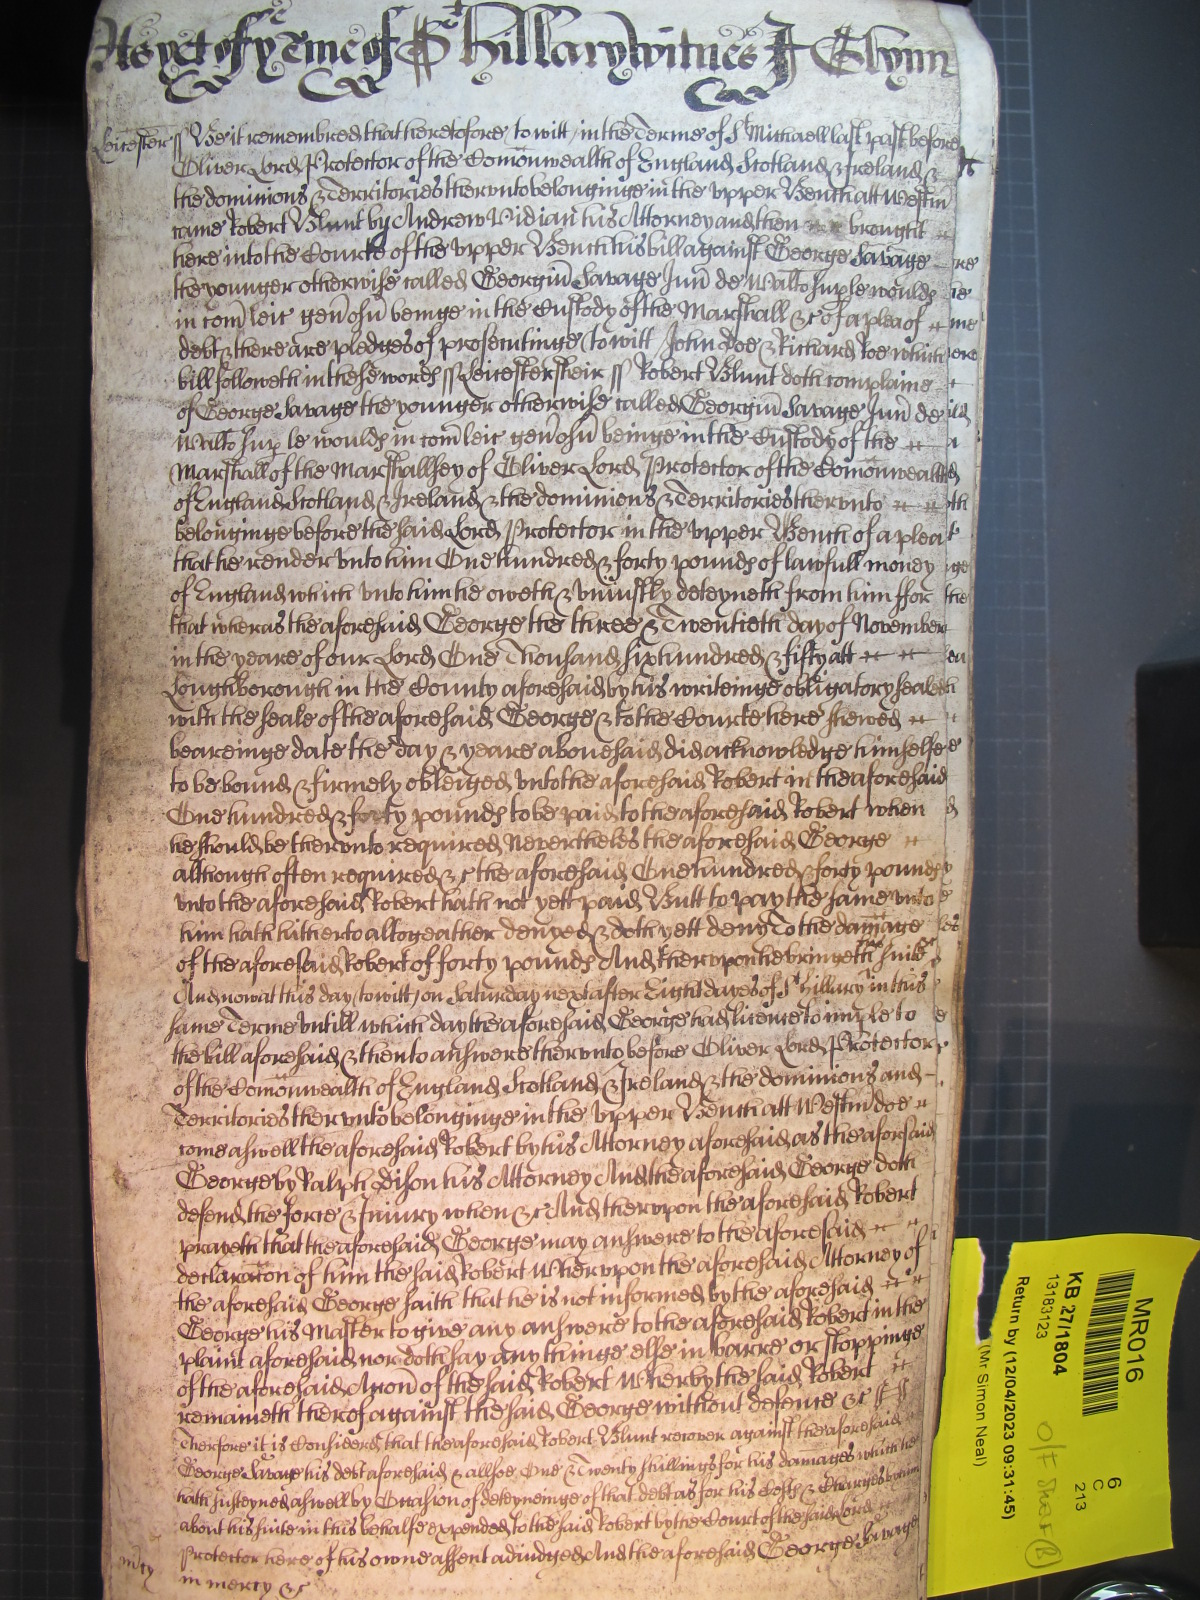 As yet of ye Tme of St Hillary witnes J Glynn
Leicester ss Be it remembred that heretofore to witt in the Terme of St Michaell last past before
Oliver Lord Protector of the Comonwealth of England Scotland & Ireland &
the dominions & Territories therunto belonginge in the vpper Bench att Westm
came Robert Blunt by Andrew Vidian his Attorney and then brought
here into the Courte of the vpper Bench his bill against George Savage
the younger otherwise called Georgiu Savage Jun de Walto sup le woulds
in com leic genosu beinge in the Custody of the Marshall &c of a plea of
debt & there are pledges of prosecutinge to witt John Doe & Richard Roe which
bill followeth in these words ss Leicestersheir ss Robert Blunt doth complaine
of George Savage the younger otherwise called Georgiu Savage Jun de
Walto sup le woulds in com leic genosu beinge in the Custody of the
Marshall of the Marshallsey of Oliver Lord Protector of the Comonwealth
of England Scotland & Ireland & the dominions & Territories therunto
belonginge before the said Lord Protector in the vpper Bench of a plea
that he render vnto him One hundred & forty pounds of lawfull money
of England which vnto him he oweth & vniustly deteyneth from him ffor
that wheras the aforesaid George the three & Twentieth day of November
in the yeare of our Lord One Thousand six hundred & fifty att
Loughborough in the County aforesaid by his writeinge obligatory sealed
with the seale of the aforesaid George & to the Courte here shewed
beareinge date the day & yeare abouesaid did acknowledge himselfe
to be bound & firmely obleiged vnto the aforesaid Robert in the aforesaid
One hundred & forty pounds to be paid to the aforesaid Robert when
he should be therunto required Nevertheles the aforesaid George
although often required &c the aforesaid One hundred & forty pounds
vnto the aforesaid Robert hath not yett paid Butt to pay the same vnto
him hath hitherto altogeather denyed & doth yett deny To the damage
of the aforesaid Robert of forty pounds And thervpon he bringeth suite
And now at this day to witt on Saturday next after Eight dayes of St Hillary in this
same Terme vntill which day the aforesaid George had licence to imple to
the bill aforesaid & then to answere thervnto before Oliver Lord Protector
of the Comonwealth of England Scotland & Ireland & the dominions and
Territories ther vnto belonginge in the vpper Bench att Westm doe
come aswell the aforesaid Robert by his Attorney aforesaid as the aforsaid
George by Ralph Dison his Attorney And the aforesaid George doth
defend the force & Iniury when &c And thervpon the aforesaid Robert
prayeth that the aforesaid George may answere to the aforesaid
declaracon of him the said Robert Whervpon the aforesaid Attorney of
the aforesaid George saith that he is not informed by the aforesaid
George his Master to give any answere to the aforesaid Robert in the
plaint aforesaid nor doth say any thinge else in barre or stoppinge
of the aforesaid Accon of the said Robert Wherby the said Robert
remaineth therof against the said George without defence &c
Therfore it is Considered that the aforesaid Robert Blunt recover against the aforesaid
George Savage his debt aforesaid & allsoe One & Twenty shillings for his damages which he
hath susteyned aswell by Occasion of deteyneinge of that debt as for his Costs & Charges by him
about his suite in this behalfe expended to the said Robert by the Court of the said Lord
Protector here of his owne assent adiudged And the aforesaid George Savage
in mercy &c
mcy
MR016
KB 27/1804
13183123
Return by (12/04/2023 09:31:45)
(Mr Simon Neal)
6
C
213